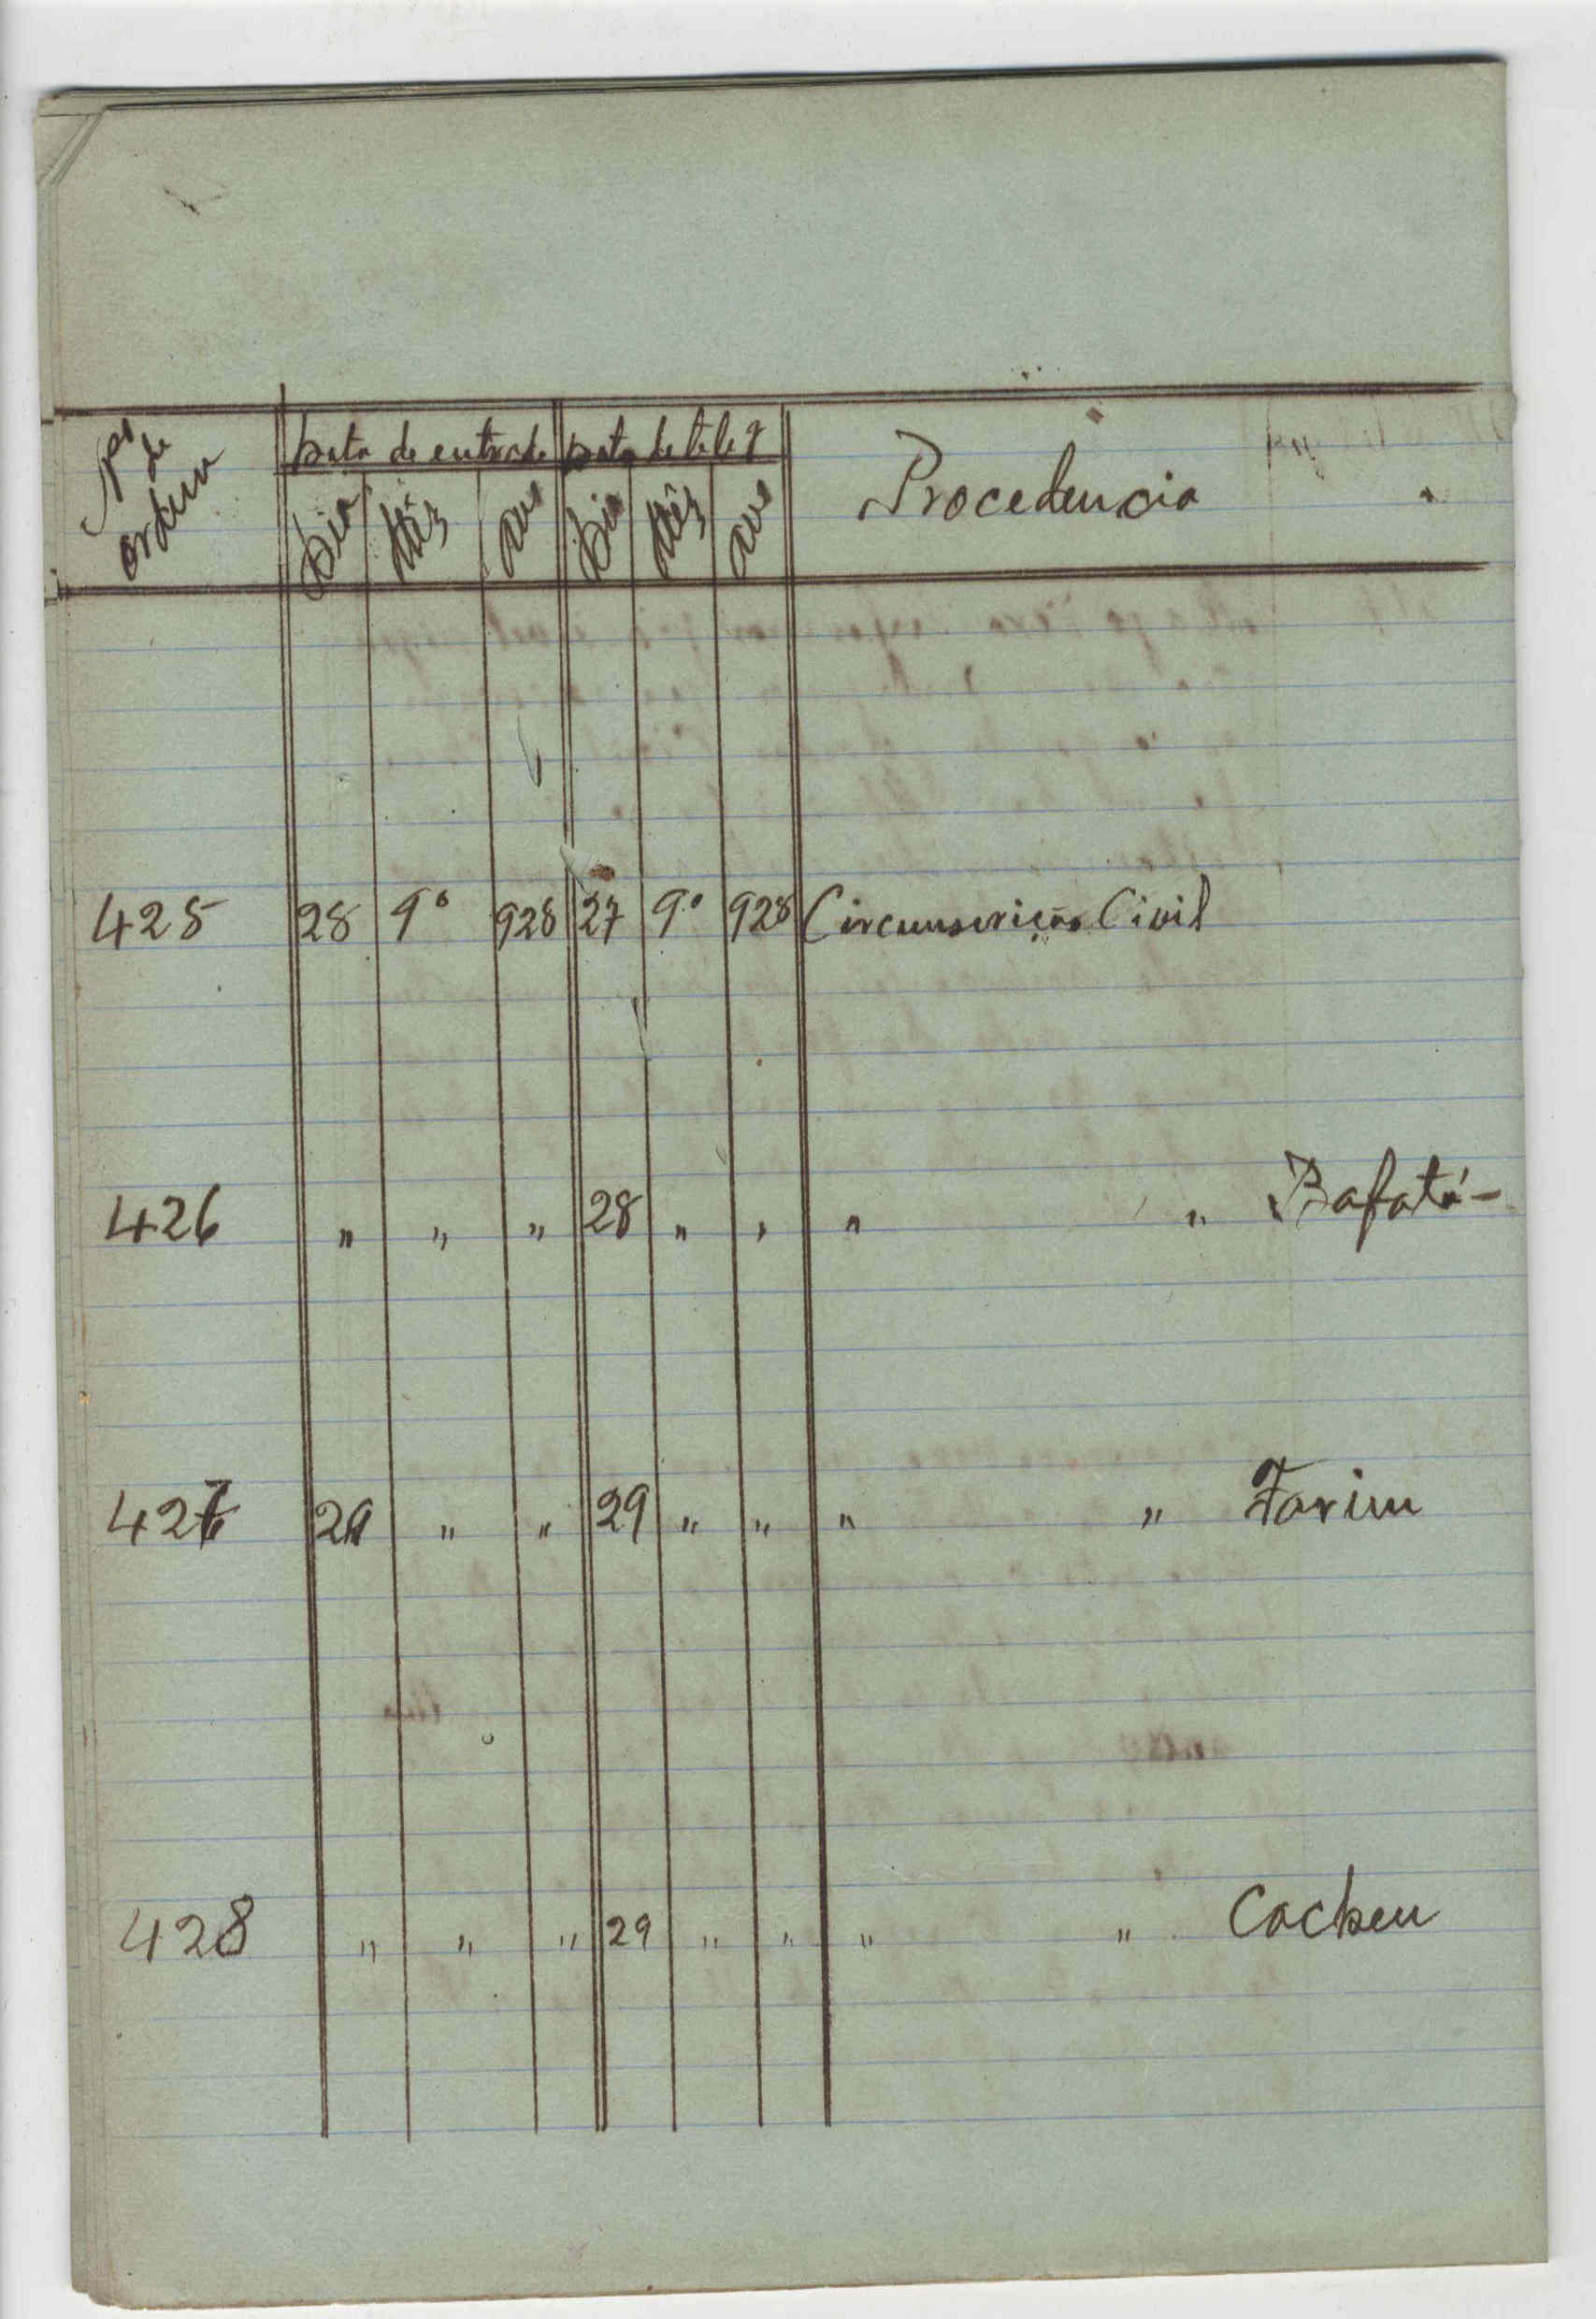 Nº de ordem Data de entrada Data de teleg Procedencia
Dia Mês Ano Dia Mês Ano
425 28 9º 928 27 9º 928 Circunscrição Civil
426 " " " 28 " " " " Bafatá-
427 29 " " 29 " " " " Farim
428 " " " 29 " " " " Cacheu